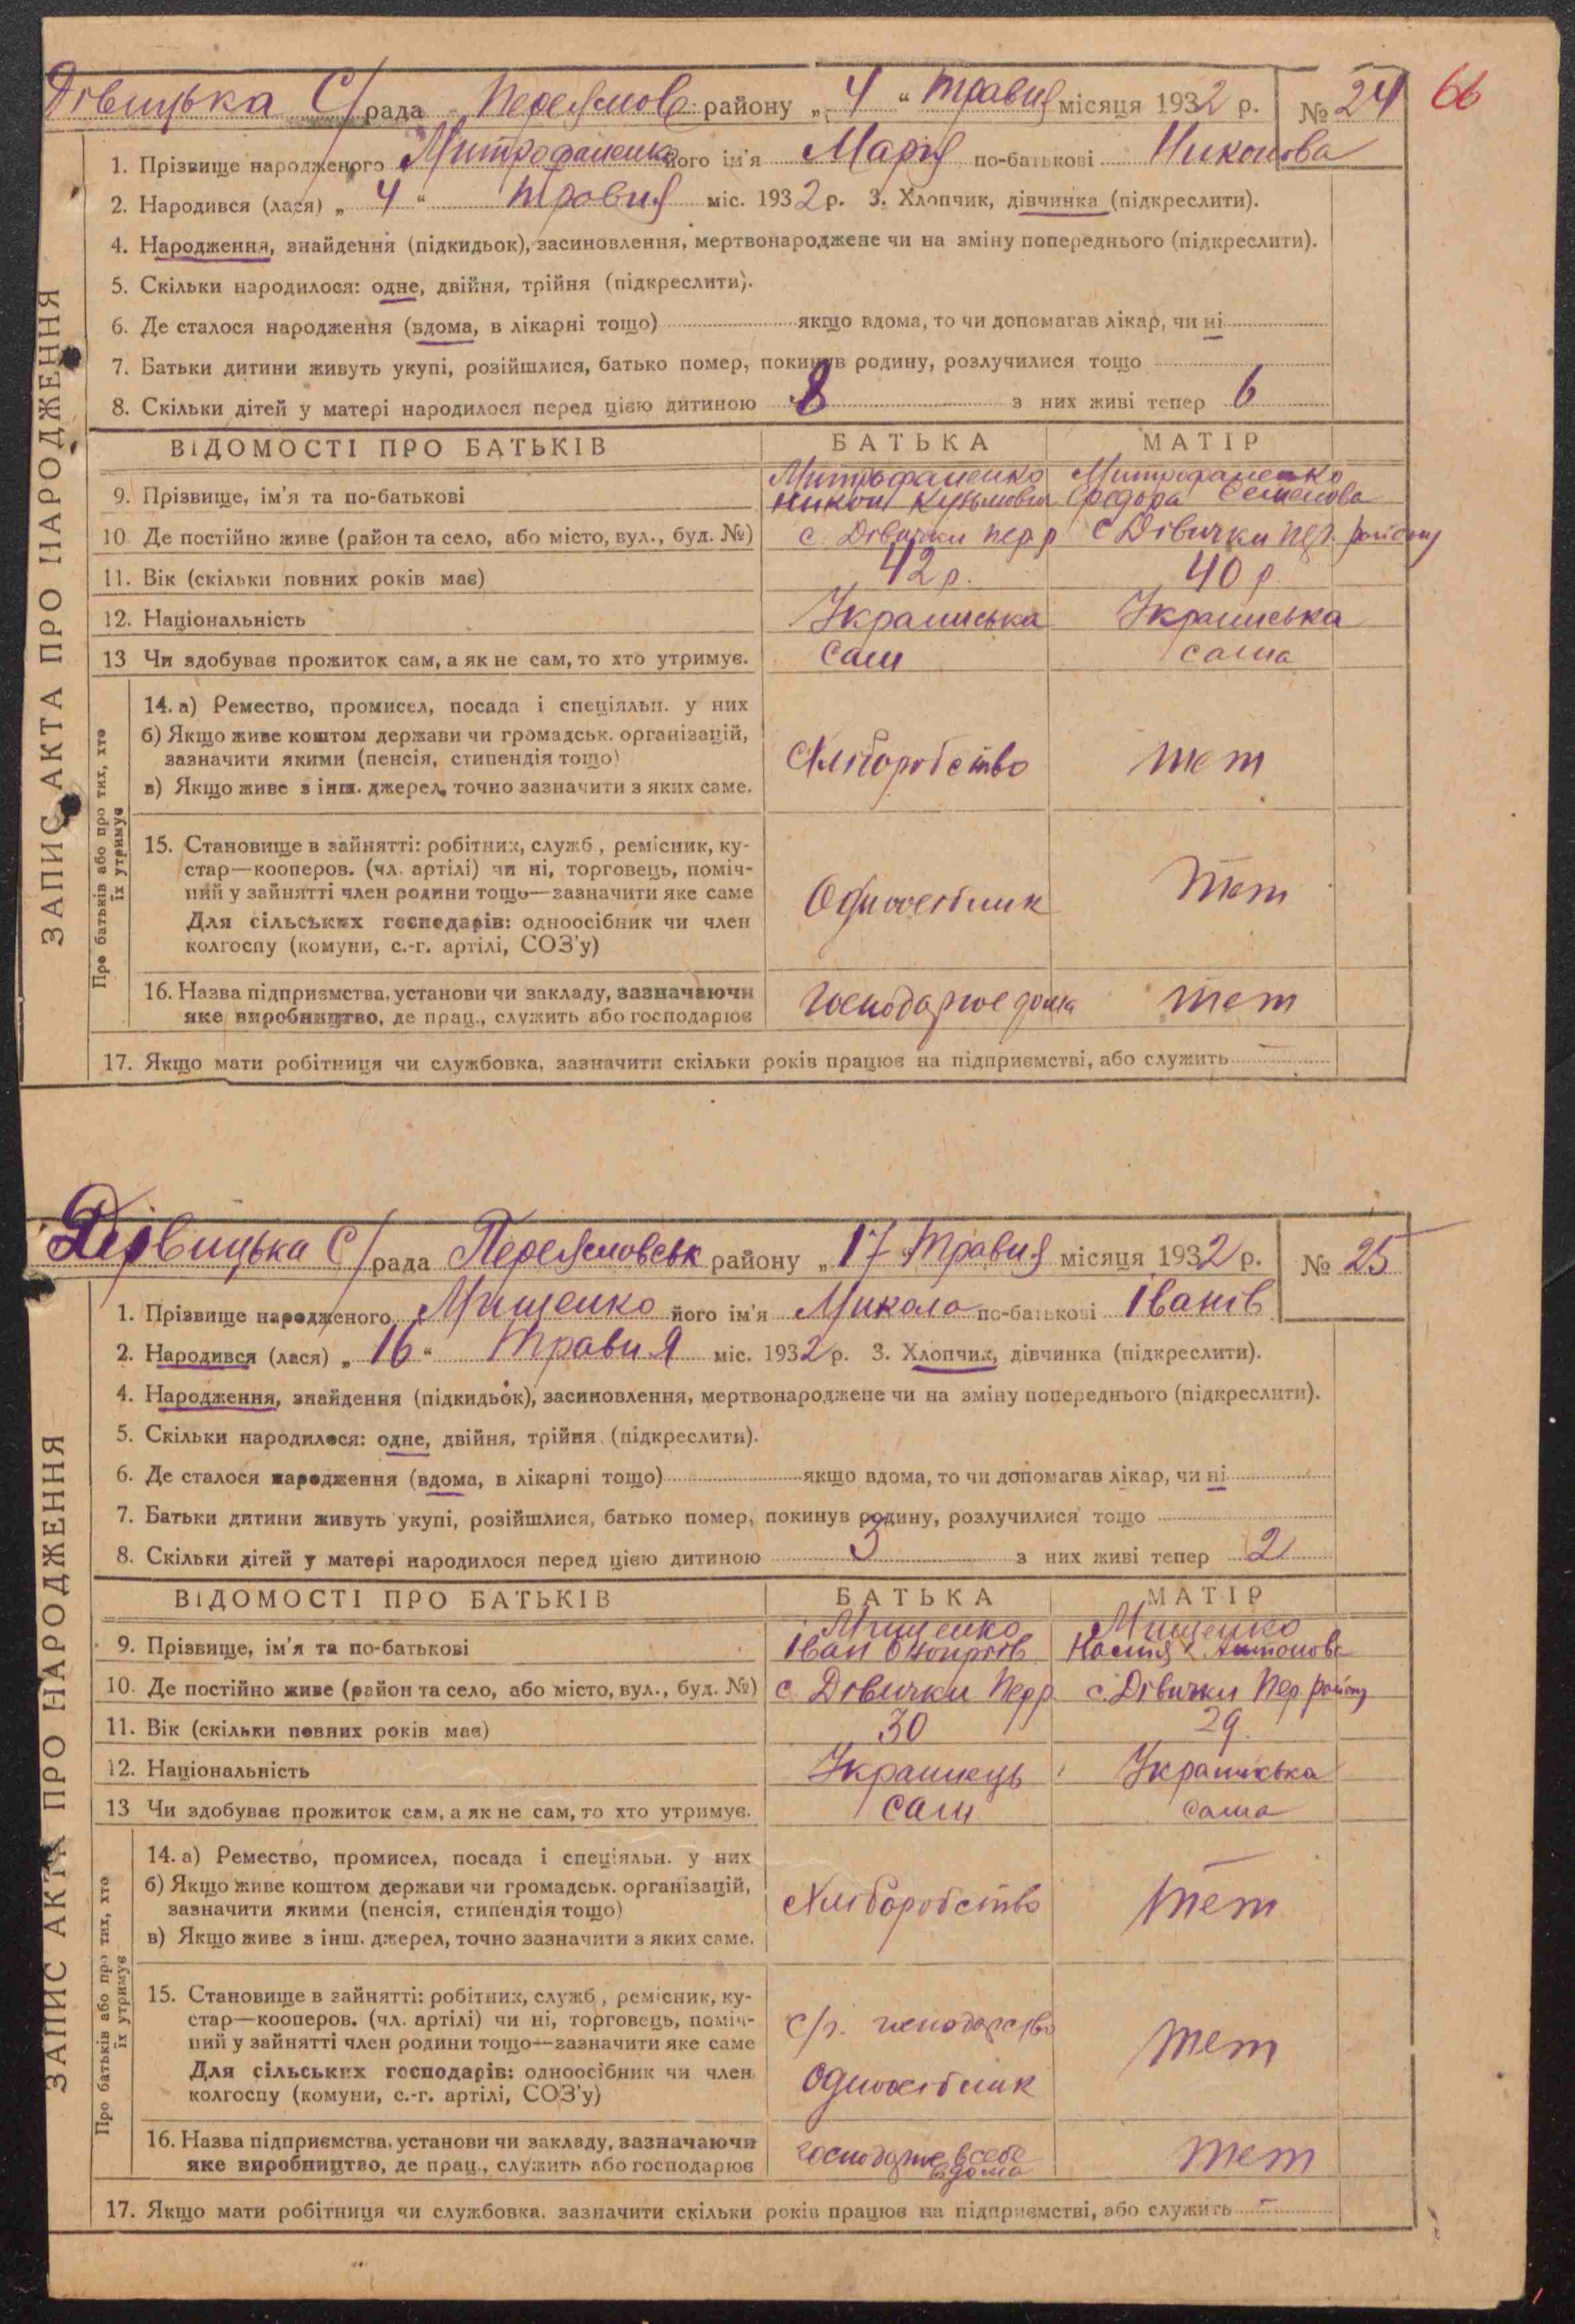 Дівицька С/рада Переяслов. району „4“ травня місяця 1932 р. № 24 66
1. Прізвище народженого Митрофаненко його ім'я Марія по-батькові Никонова
2. Народився (лася) „4“ травня міс. 1932 р. 3. Хлопчик, дівчинка (підкреслити).
4. Народження, знайдення (підкидьок), засиновлення, мертвонароджене чи на зміну попереднього (підкреслити).
5. Скільки народилося: одне, двійня, трійня (підкреслити).
6. Де сталося народження (вдома, в лікарні тощо) якщо вдома, то чи допомагав лікар, чи ні
7. Батьки дитини живуть укупі, розійшлися, батько помер, покинув родину, розлучилися тощо
8. Скільки дітей у матері народилося перед цією дитиною 8 з них живі тепер 6
ВІДОМОСТІ ПРО БАТЬКІВ БАТЬКА МАТІР
9. Прізвище, ім'я та по-батькові Митрофаненко Никон Кузьмович Митрофаненко Федора Семенова
10. Де постійно живе (район та село, або місто, вул., буд. №) с. Дівички Пер. р с Дівички Пер. району
11. Вік (скільки повних років має) 42 р. 40 р.
12. Національність Українська Українська
13 Чи здобуває прожиток сам, а як не сам, то хто утримує. сам сама
14. а) Ремество, промисел, посада і спеціяльн. у них
б) Якщо живе коштом держави чи громадськ. організацій,
зазначити якими (пенсія, стипендія тощо)
в) Якщо живе з інш. джерел, точно зазначити з яких саме.
Хліборобство теж
15. Становище в зайнятті: робітник, служб., ремісник, ку-
стар—кооперов. (чл. артілі) чи ні, торговець, поміч-
ний у зайнятті член родини тощо—зазначити яке саме
Для сільських господарів: одноосібник чи член
колгоспу (комуни, с.-г. артілі, СОЗ'у)
Одноосібник теж
16. Назва підприємства, установи чи закладу, зазначаючи
яке виробництво, де прац., служить або господарює
господарює дома теж
17. Якщо мати робітниця чи службовка, зазначити скільки років працює на підприємстві, або служить –
ЗАПИС АКТА ПРО НАРОДЖЕННЯ
Про батьків або про тих, хто
їх утримує
Дівицька С/рада Переясловськ району „17“ травня місяця 1932 р. № 25
1. Прізвище народженого Мищенко його ім'я Микола по-батькові Іванів
2. Народився (лася) „16“ травня міс. 1932 р. 3. Хлопчик, дівчинка (підкреслити).
4. Народження, знайдення (підкидьок), засиновлення, мертвонароджене чи на зміну попереднього (підкреслити).
5. Скільки народилося: одне, двійня, трійня (підкреслити).
6. Де сталося народження (вдома, в лікарні тощо) якщо вдома, то чи допомагав лікар, чи ні
7. Батьки дитини живуть укупі, розійшлися, батько помер, покинув родину, розлучилися тощо
8. Скільки дітей у матері народилося перед цією дитиною 3 з них живі тепер 2
ВІДОМОСТІ ПРО БАТЬКІВ БАТЬКА МАТІР
9. Прізвище, ім'я та по-батькові Мищенко Іван Мищенко Настя Антонова
10. Де постійно живе (район та село, або місто, вул., буд. №) с. Дівички Пер р. с. Дівички Пер району
11. Вік (скільки повних років має) 30 29
12. Національність Українець Українська
13 Чи здобуває прожиток сам, а як не сам, то хто утримує. сам. сама
14. а) Ремество, промисел, посада і спеціяльн. у них
б) Якщо живе коштом держави чи громадськ. організацій,
зазначити якими (пенсія, стипендія тощо)
в) Якщо живе з інш. джерел, точно зазначити з яких саме.
Хліборобство теж
15. Становище в зайнятті: робітник, служб., ремісник, ку-
стар—кооперов. (чл. артілі) чи ні, торговець, поміч-
ний у зайнятті член родини тощо—зазначити яке саме
Для сільських господарів: одноосібник чи член
колгоспу (комуни, с.-г. артілі, СОЗ'у)
с/г. господарство
одноосібник теж
16. Назва підприємства, установи чи закладу, зазначаючи
яке виробництво, де прац., служить або господарює
господарює в себе
вдома теж
17. Якщо мати робітниця чи службовка, зазначити скільки років працює на підприємстві, або служить –
ЗАПИС АКТА ПРО НАРОДЖЕННЯ
Про батьків або про тих, хто
їх утримує